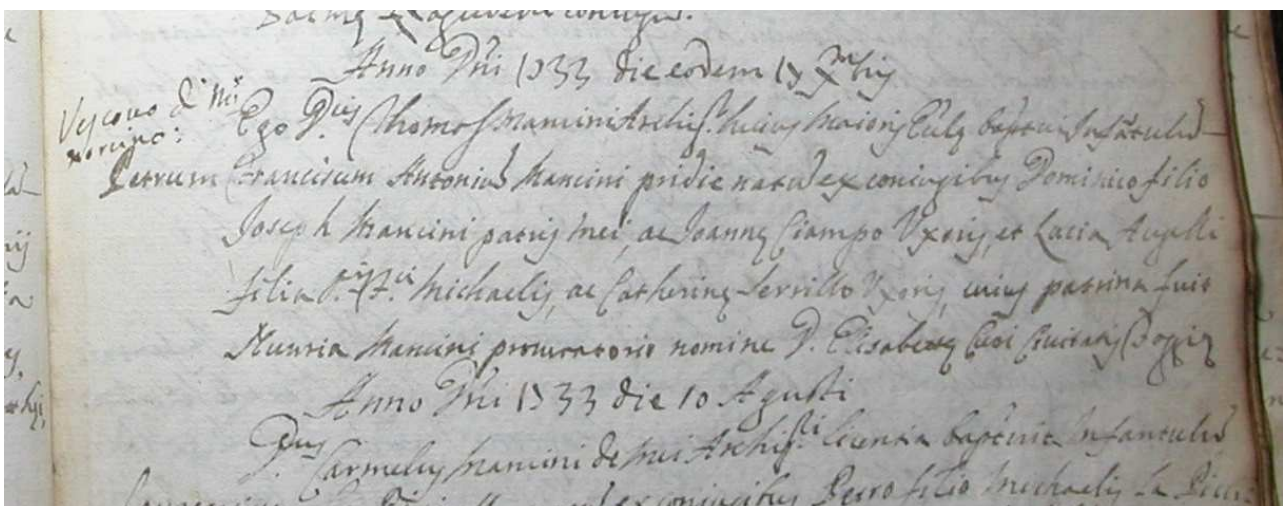 ex coniugibus.
Anno Dñi 1733 die eodem 17 Xmbris
Vescovo di
Ego D. Thomas Mancini Archip. huius Maioris Eccl.ę bapt. Infantulũ
Petrum Franciscum Antoniũ Mancini pridie natũ ex coniugibus Dominico filio
Joseph Mancini patris mei, ac Joannę Ciampo Uxoris, et Lucia Augelli
filia Michaelis, ac Catherinę Serrillo Uxoris, cuius patrina fuit
Nunria Mancini procuratorio nomine D. Elisabettę Civitatis Foggię
Anno Dñi 1733 die 10 Agusti
D. Carmelus Mancini de mei Archip. licentia baptizavit Infantulũ
ex coniugibus Petro filio Michaelis La